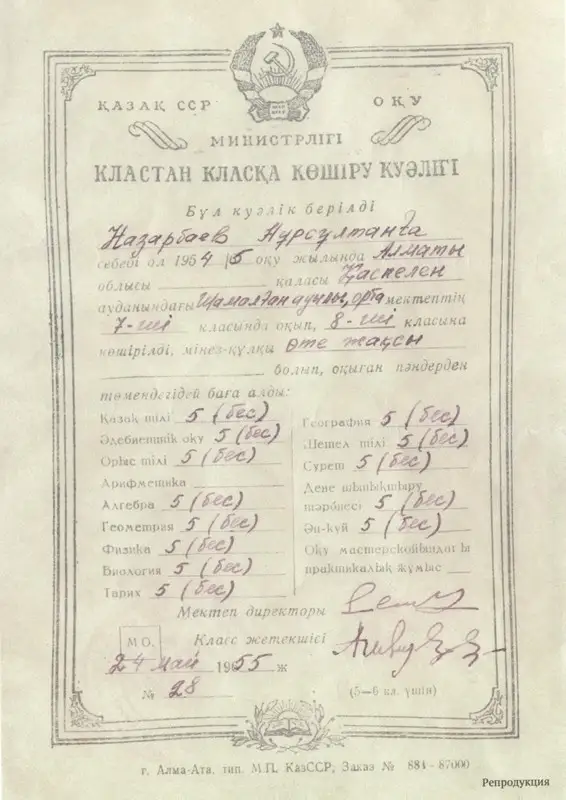 ҚАЗАҚ ССР ОҚУ
МИНИСТРЛІГІ
КЛАСТАН КЛАСҚА КӨШІРУ КУӘЛІГІ
Бұл куәлік берілді
Назарбаев Нұрсұлтанға
себебі ол 1954/5 оқу жылында Алматы
облысы қаласы Қаспелен
ауданындағы Шамалған ауылы, орта мектептің
7-ші класында оқып, 8-ші класына
көшірілді, мінез-құлқы өте жақсы
болып, оқыған пәндерден
төмендегідей баға алды:
Қазақ тілі 5 (бес)
Әдебиеттік оқу 5 (бес)
Орыс тілі 5 (бес)
Арифметика
Алгебра 5 (бес)
Геометрия 5 (бес)
Физика 5 (бес)
Биология 5 (бес)
Тарих 5 (бес)
География 5 (бес)
Шетел тілі 5 (бес)
Сурет 5 (бес)
Дене шынықтыру
тәрбиесі 5 (бес)
Ән-күй 5 (бес)
Оқу мастерскойындағы
практикалық жұмыс
Мектеп директоры
М.О. Класс жетекшісі
24 май 1955 ж
№ 28 (5—6 кл. үшін)
г. Алма-Ата, тип. М.П. КазССР, Заказ № 884 - 87000
Репродукция